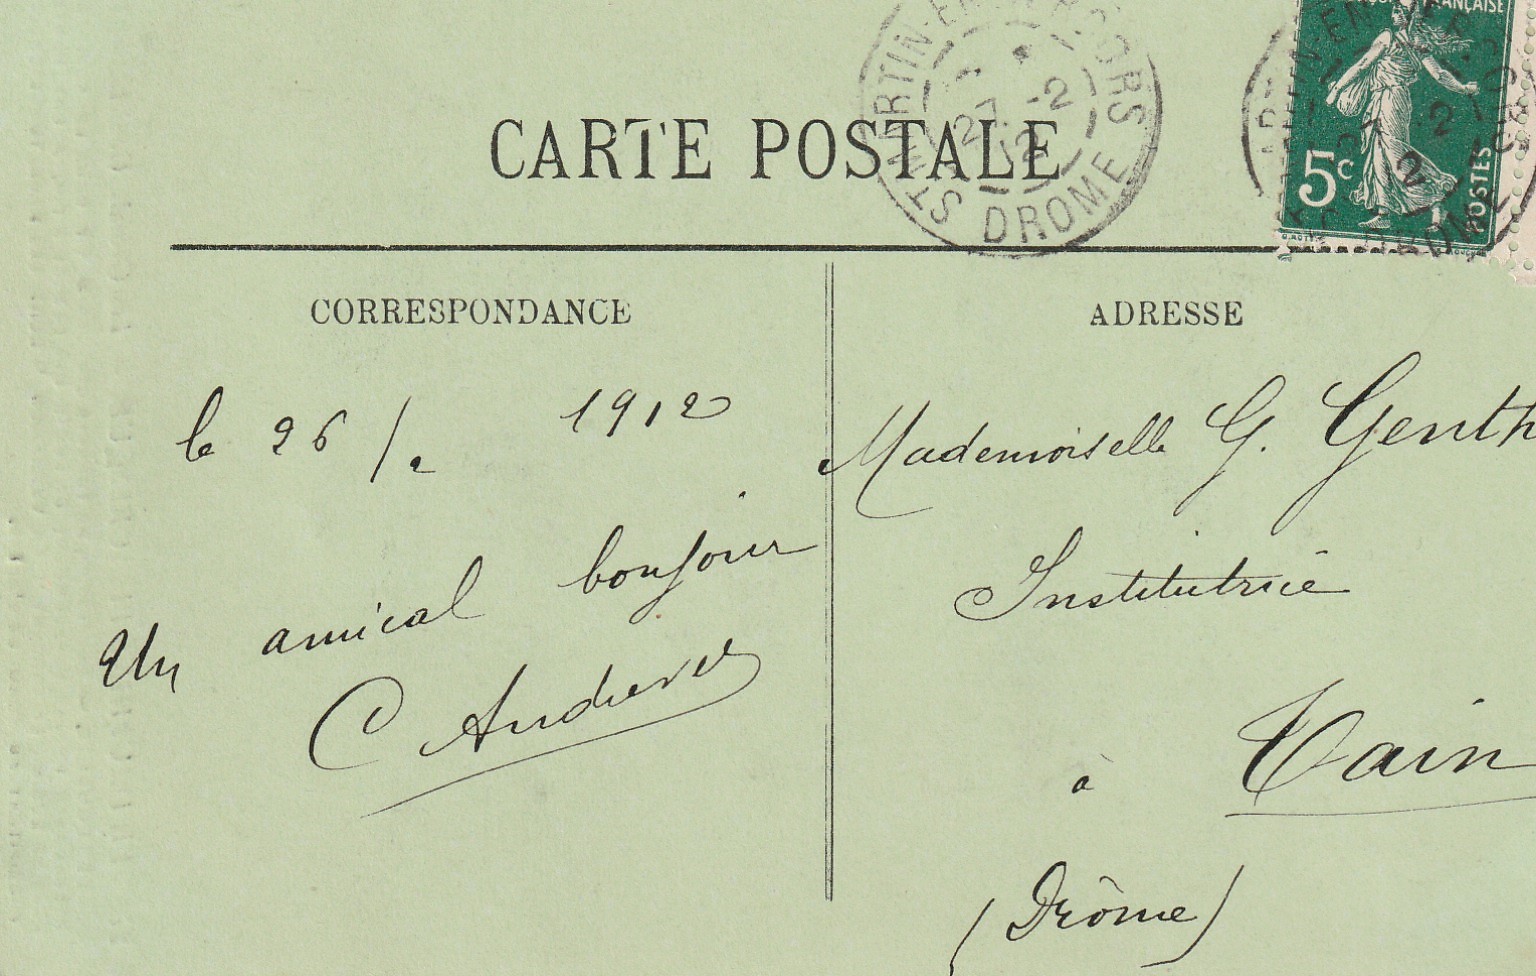 CARTE POSTALE
ST MARTIN-EN-VERCORS
27 -2
12
DROME
FRANÇAISE
5c
POSTES
CORRESPONDANCE
le 26/2 1912
Un amical bonjour
C
ADRESSE
Mademoiselle G. Genth
Institutrice
à Tain
(Drôme)